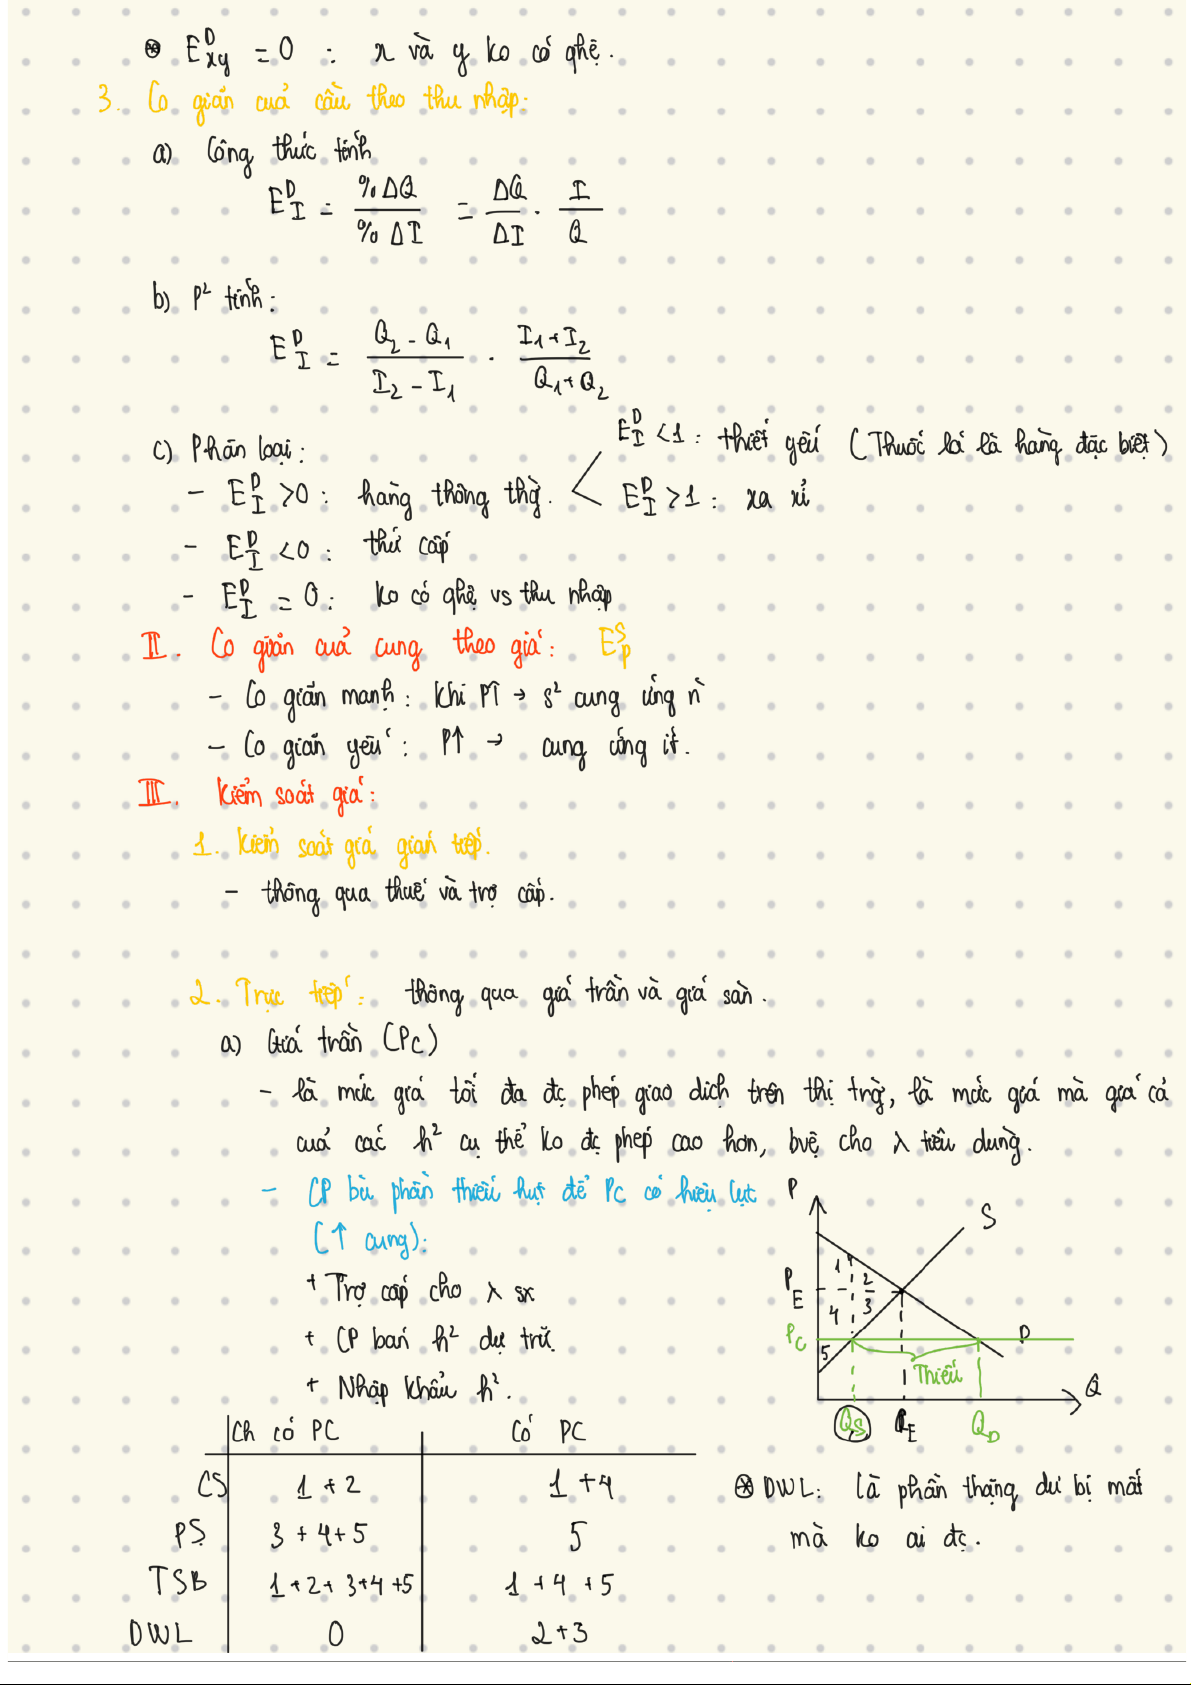 ⊛ E^D_xy = 0 : x và y ko có qhệ.
3. Co giãn cuả cầu theo thu nhập:
a) Công thức tính
E^D_I = %ΔQ / %ΔI = ΔQ / ΔI . I / Q
b) P² tính:
E^D_I = Q₂ - Q₁ / I₂ - I₁ . I₁ + I₂ / Q₁ + Q₂
c) Phân loại:
E^D_I < 1 : thiết yếu (Thuốc lá là hàng đặc biệt)
- E^D_I > 0 : hàng thông thg̀.
E^D_I > 1 : xa xỉ
- E^D_I < 0 : thứ cấp
- E^D_I = 0 : ko có qhệ vs thu nhập
II. Co giãn cuả cung theo giá: E^S_p
- Co giãn mạnh : khi P↑ → s² cung ứng n̄
- Co giãn yếu : P↑ → cung ứng ít.
III. Kiểm soát giá:
1. Kiểm soát giá gián tiếp.
- thông qua thuế và trợ cấp.
2. Trực tiếp : thông qua giá trần và giá sàn.
a) Giá trần (Pc)
- là mức giá tối đa đc phép giao dịch trên thị trg̀, là mức giá mà giá cả
cuả các h² cụ thể ko đc phép cao hơn, bvệ cho λ tiêu dùng.
- CP bù phần thiếu hụt để Pc có hiệu lực
(↑ cung):
+ Trợ cấp cho λ sx
+ CP bán h² dự trữ
+ Nhập khẩu h².
P
S
1
2
P_E
4
3
Pc
D
5
Thiếu
Q
Q_S
Q_E
Q_D
Ch có PC Có PC
CS 1 + 2 1 + 4
PS 3 + 4 + 5 5
TSB 1 + 2 + 3 + 4 + 5 1 + 4 + 5
DWL 0 2 + 3
⊛ DWL: là phần thặng dư bị mất
mà ko ai đc.